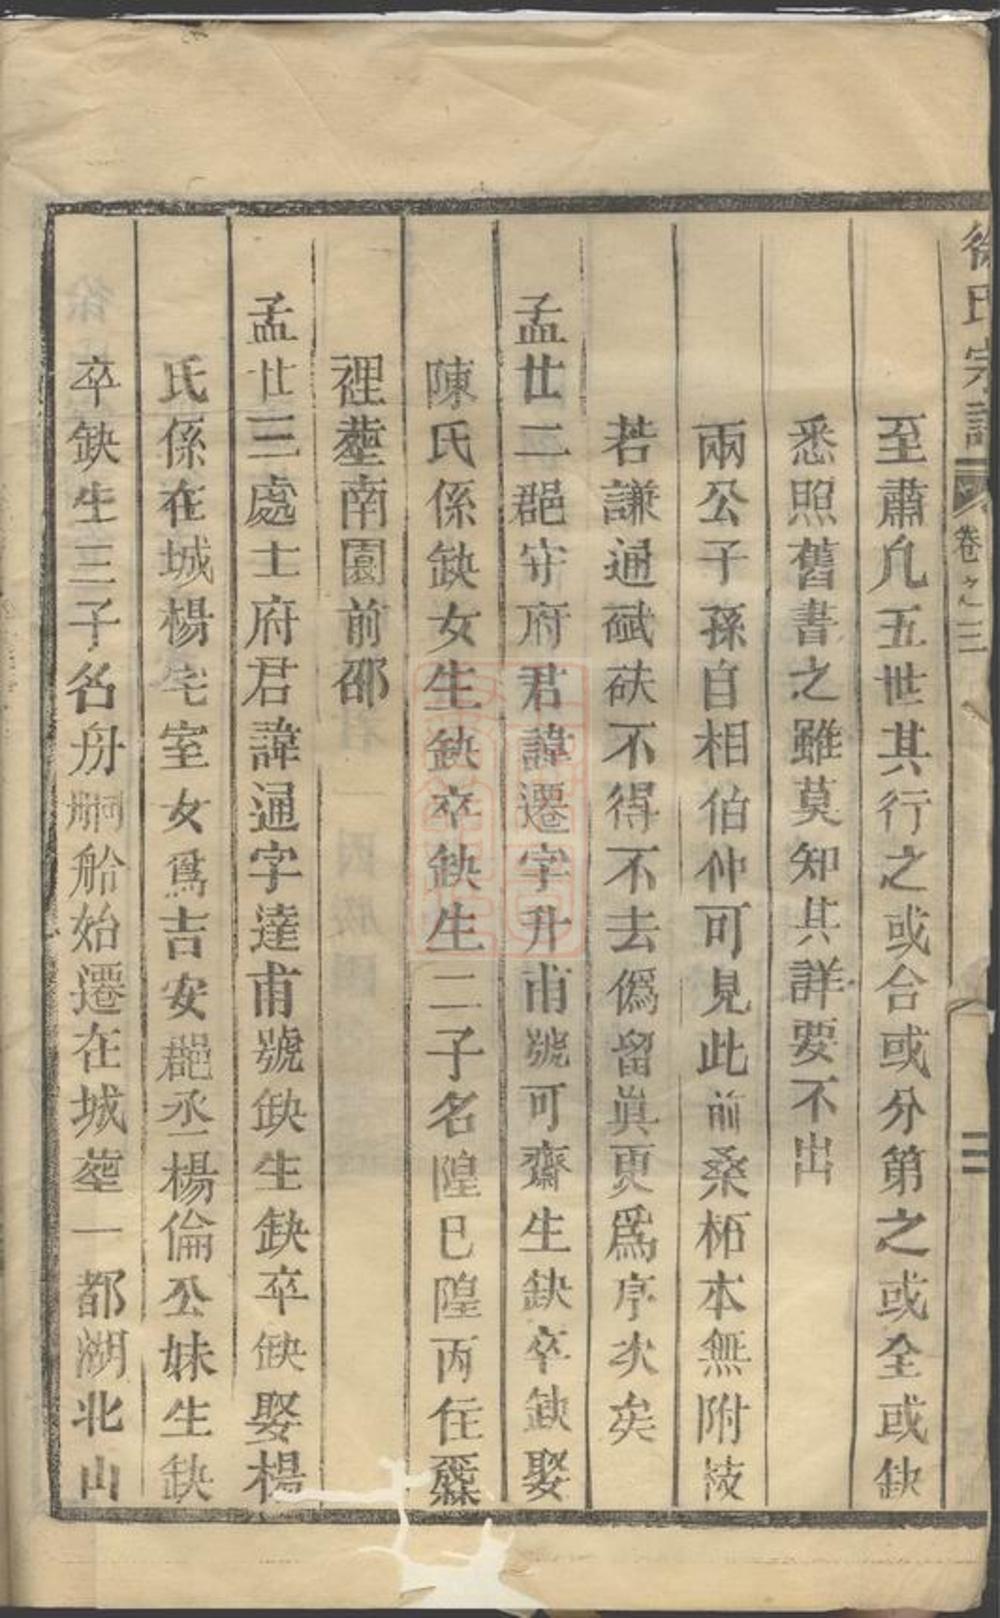 徐氏宗譜 卷之三 三
至肅凢五世其行之或合或分第之或全或缺
悉照舊書之雖莫知其詳要不出
兩公子孫自相伯仲可見此前桑柘本無附枝
若謙通碔砆不得不去僞留眞更爲序次矣
孟廿二郡守府君諱遷字升甫號可齋生缺卒缺娶
陳氏係缺女生缺卒缺生二子名隍巳隍丙住
裡塟南園前邵
孟廿三處士府君諱通字達甫號缺生缺卒缺娶楊
氏係在城楊宅室女爲吉安郡丞楊倫公妹生缺
卒缺生三子名舟船始遷在城塟一都湖北山